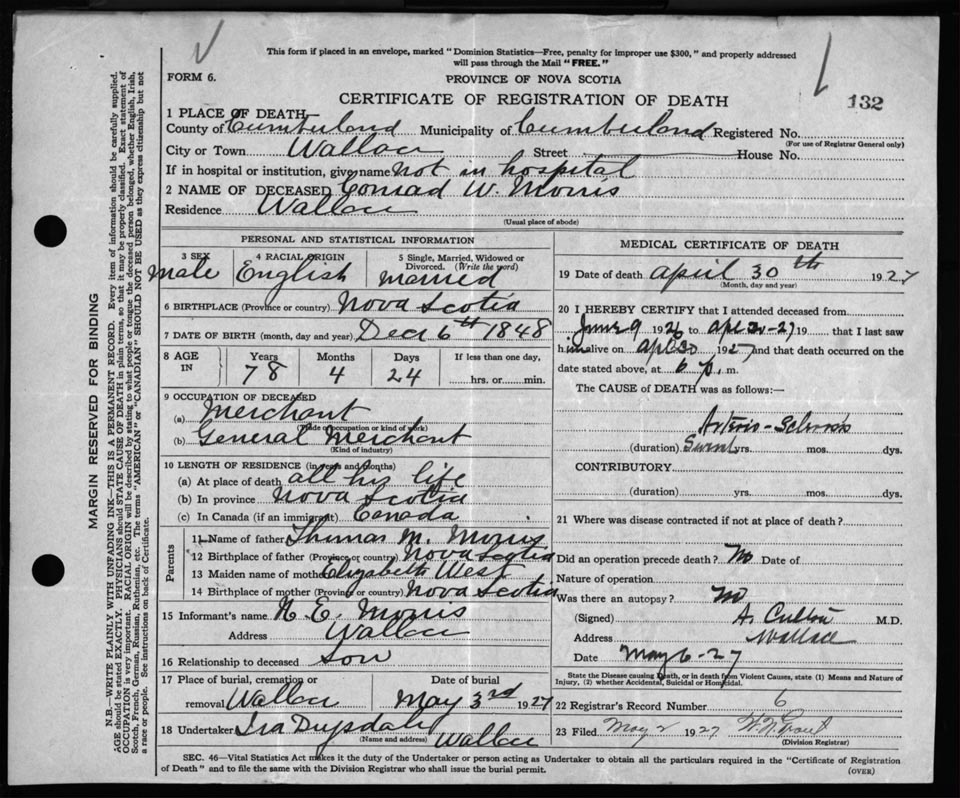 This form if placed in an envelope, marked "Dominion Statistics—Free, penalty for improper use $300," and properly addressed
will pass through the Mail "FREE."
FORM 6.
PROVINCE OF NOVA SCOTIA
CERTIFICATE OF REGISTRATION OF DEATH
132
1 PLACE OF DEATH
County of Cumberland Municipality of Cumberland Registered No.
(For use of Registrar General only)
City or Town Wallace Street House No.
If in hospital or institution, give name not in hospital
2 NAME OF DECEASED Conrad W. Morris
Residence Wallace
(Usual place of abode)
PERSONAL AND STATISTICAL INFORMATION
3 SEX 4 RACIAL ORIGIN 5 Single, Married, Widowed or
Divorced. (Write the word)
Male English married
6 BIRTHPLACE (Province or country) Nova Scotia
7 DATE OF BIRTH (month, day and year) Dec 6th 1848
8 AGE IN Years Months Days If less than one day,
78 4 24 hrs. or min.
9 OCCUPATION OF DECEASED
(a) Merchant
(Trade occupation or kind of work)
(b) General Merchant
(Kind of industry)
10 LENGTH OF RESIDENCE (in years and months)
(a) At place of death all his life
(b) In province Nova Scotia
(c) In Canada (if an immigrant) Canada
Parents
11 Name of father Thomas M. Morris
12 Birthplace of father (Province or country) Nova Scotia
13 Maiden name of mother Elizabeth West
14 Birthplace of mother (Province or country) Nova Scotia
15 Informant's name H. E. Morris
Address Wallace
16 Relationship to deceased Son
17 Place of burial, cremation or Date of burial
removal Wallace May 3rd 1927
18 Undertaker Ira Drysdale
(Name and address) Wallace
MEDICAL CERTIFICATE OF DEATH
19 Date of death april 30th 1927
(Month, day and year)
20 I HEREBY CERTIFY that I attended deceased from
June 9 1926 to apl 30-27 19 that I last saw
him alive on apl 30 1927 and that death occurred on the
date stated above, at 6 p. m.
The CAUSE of DEATH was as follows:—
Arterio-Sclerosis
(duration) Several yrs. mos. dys.
CONTRIBUTORY
(duration) yrs. mos. dys.
21 Where was disease contracted if not at place of death?
Did an operation precede death? No Date of
Nature of operation
Was there an autopsy? No
(Signed) M.D.
Address Wallace
Date May 6-27
State the Disease causing Death, or in death from Violent Causes, state (1) Means and Nature of
Injury, (2) whether Accidental, Suicidal or Homicidal.
22 Registrar's Record Number 6
23 Filed May 2 1927
(Division Registrar)
SEC. 46—Vital Statistics Act makes it the duty of the Undertaker or person acting as Undertaker to obtain all the particulars required in the "Certificate of Registration
of Death" and to file the same with the Division Registrar who shall issue the burial permit.
(OVER)
MARGIN RESERVED FOR BINDING
N.B.—WRITE PLAINLY WITH UNFADING INK—THIS IS A PERMANENT RECORD. Every item of information should be carefully supplied.
AGE should be stated EXACTLY. PHYSICIANS should STATE CAUSE OF DEATH in plain terms, so that it may be properly classified. Exact statement of
OCCUPATION is very important. RACIAL ORIGIN will be described by stating to what people or tongue the deceased person belonged, whether English, Irish,
Scotch, French, German, Russian, Ruthenian, etc. The terms "AMERICAN" or "CANADIAN" SHOULD NOT BE USED as they express citizenship but not
a race or people. See instructions on back of Certificate.